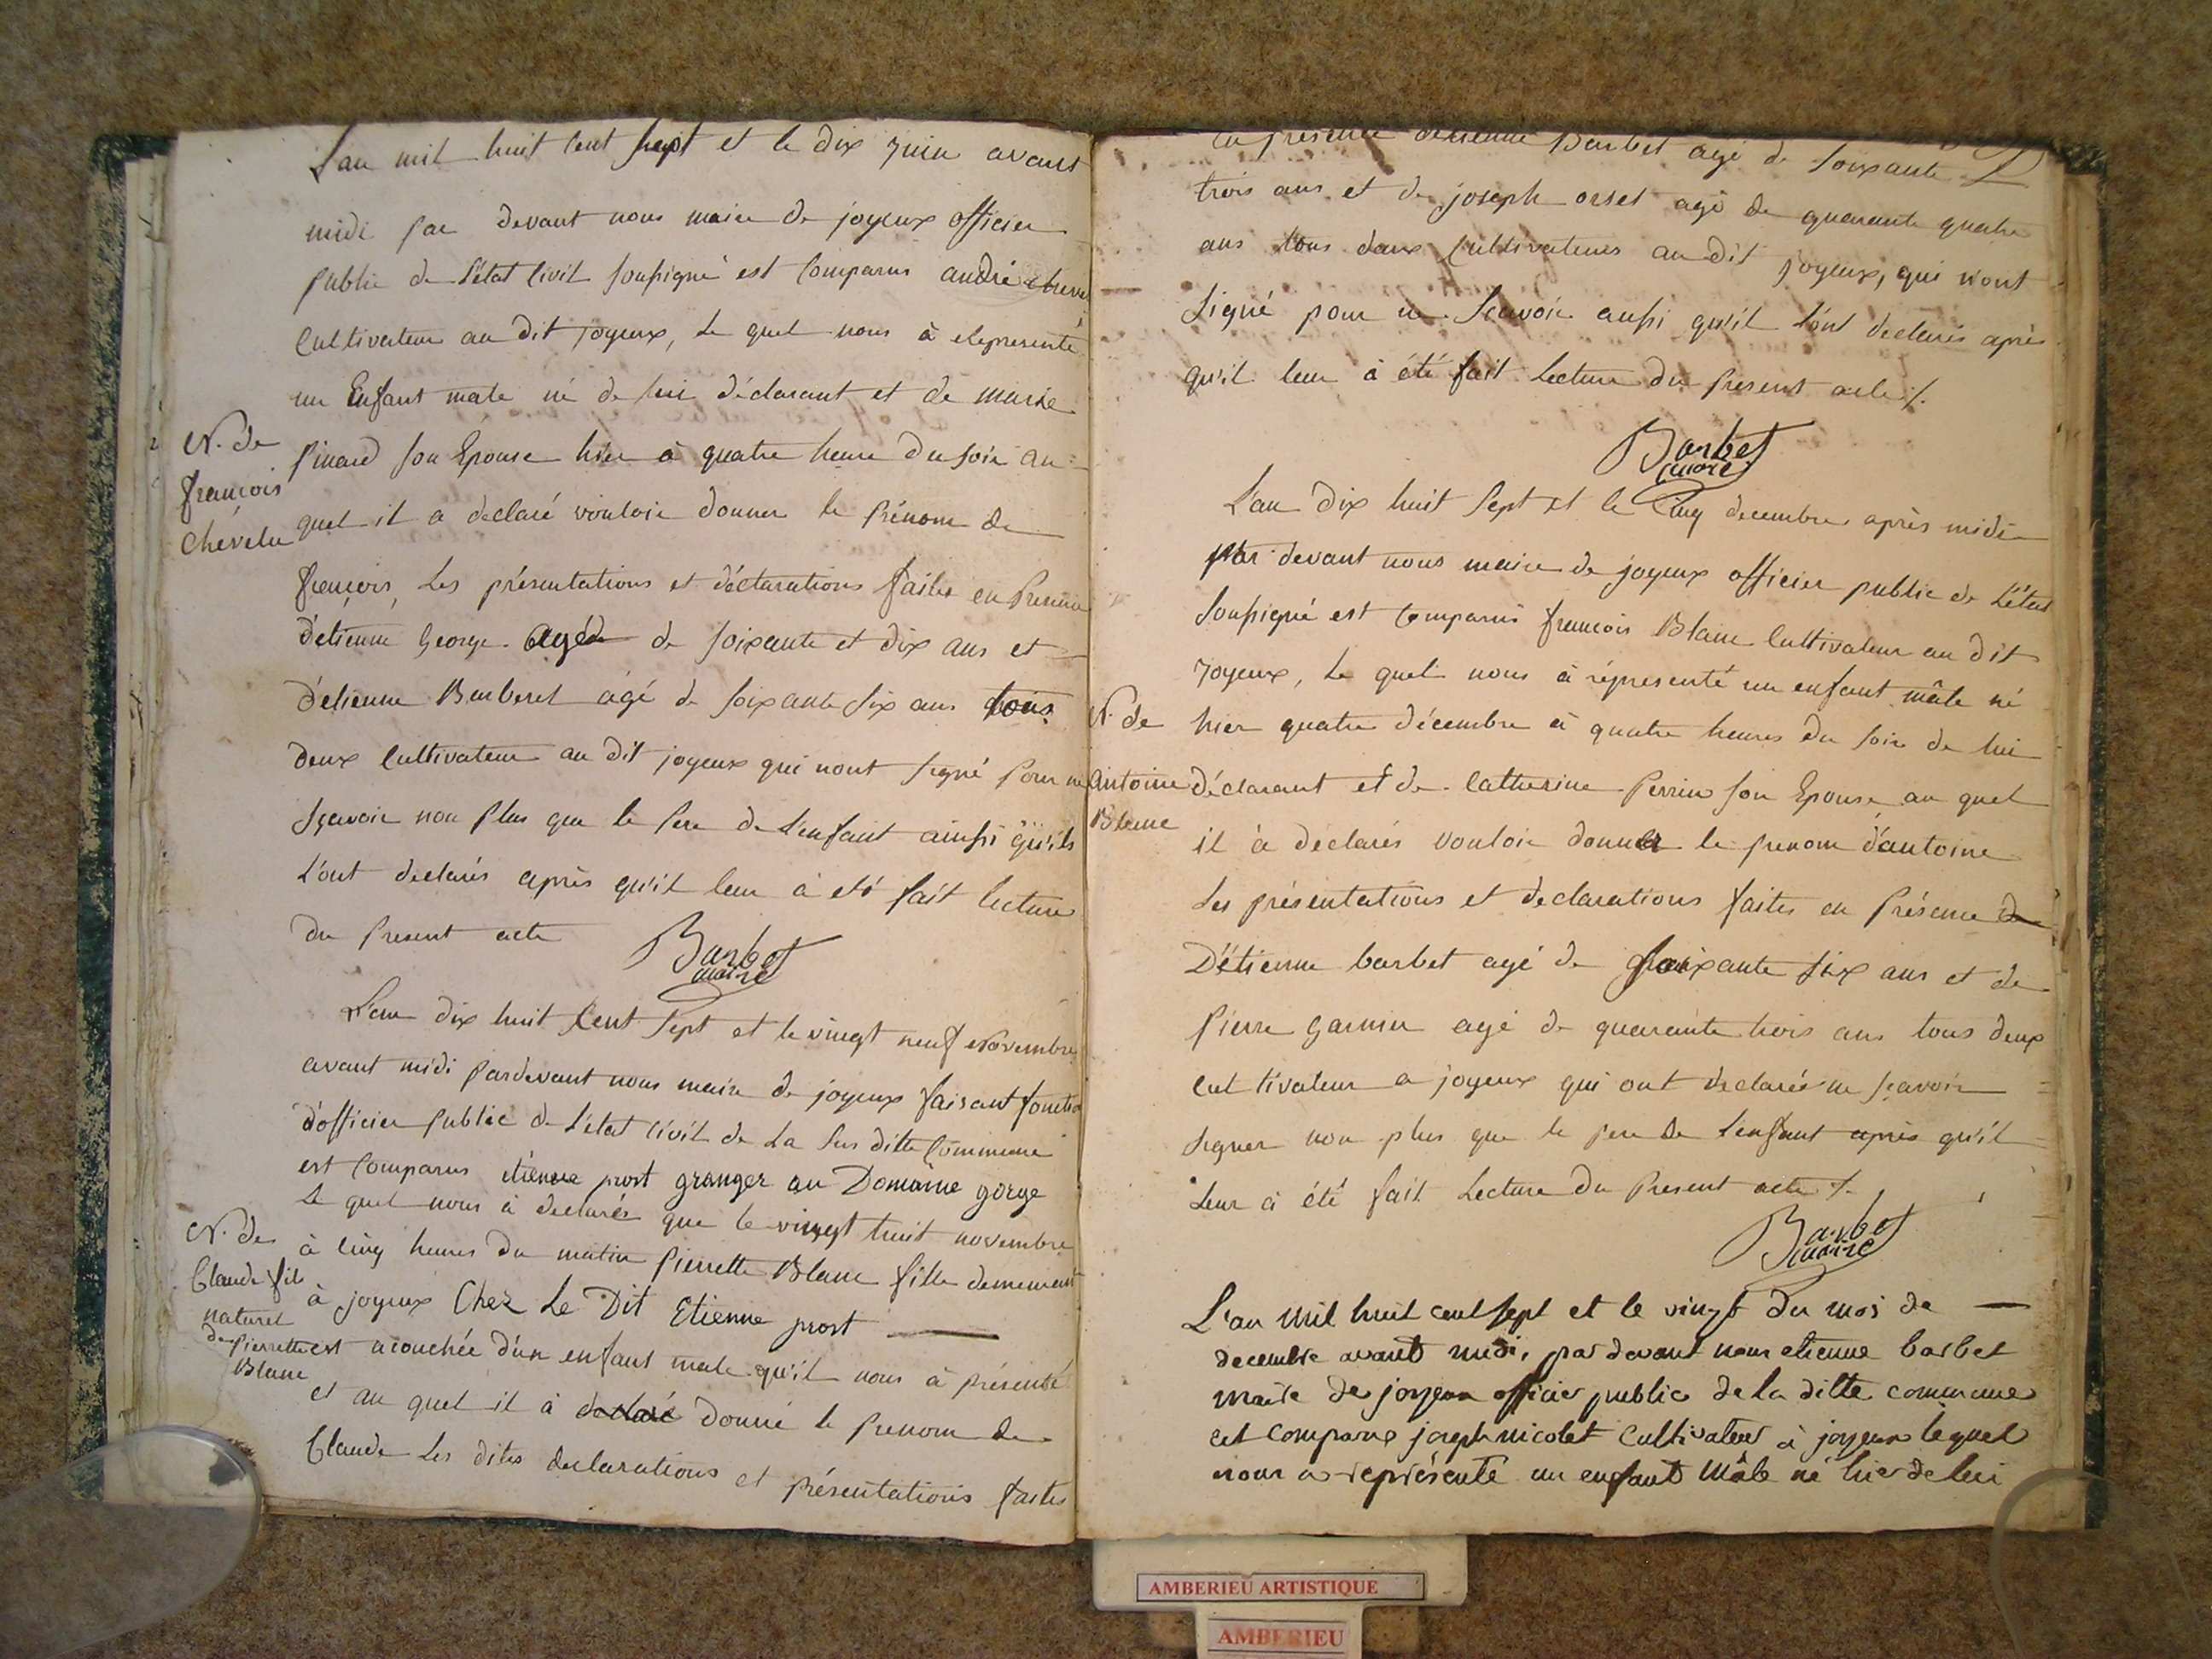 L'an mil huit cent sept et le dix juin avant
midi par devant nous maire de joyeux officier
public de L'état Civil soussigné est Comparus andré cheve
Cultivateur au dit joyeux, Le quel nous à représenté
un Enfant male né de lui déclarant et de marie
pinard son Epouse hier à quatre heure du soir au
quel il a declaré vouloir donner le Prénom de
françois, Les présentations et déclarations faites en Presence
d'etienne George agéd de soixante et dix ans et
d'etienne Barberet agé de soixante six ans tous
deux Cultivateur au dit joyeux qui nont signé Pour ne
sçavoir non Plus que le Pere de L'enfant ainssi qu'ils
L'ont declarés après qu'il leur à eté fait lecture
du Present acte
Barbet
maire
N. de
françois
Chevelu
L'an dix huit Cent Sept et le vingt neuf Novembre
avant midi Pardevant nous maire de joyeux faisant fonctio
d'officier Public de L'état Civil de La Sus ditte Commune
est Comparus etienne prost granger au Domaine gorge
Le quel nous à declarés que le vingt huit novembre
à Cinq heures du matin Pierrette Blanc fille demeurant
à joyeux Chez Le Dit Etienne prost
est acouchée d'un enfant male qu'il nous à présenté
et au quel il à declaré donné le Prenom de
Claude Les dites declarations et présentations faites
N. de
Claude fils
naturel
de Pierrette
Blanc
En presence d'etienne Barbet agé de soixante
trois ans et de joseph orset agé de quarante quatre
ans tous deux Cultivateurs au dit joyeux, qui n'ont
Signé pour ne Scavoir aussi qu'il l'ont declarés après
qu'il leur à été fait Lecture du Present acte ./.
Barbet
maire
L'an dix huit Sept et le Cinq decembre après midi
par devant nous maire de joyeux officier public de L'état
Soussigné est Comparus françois Blanc Cultivateur au dit
joyeux, Le quel nous à réprésenté un enfant mâle né
hier quatre décembre à quatre heures du soir de lui
déclarant et de Catherine Perrin son Epouse au quel
il à declarés vouloir donner le prenom d'antoine
Les présentations et declarations faites en Présence de
D'étienne barbet agé de soixante six ans et de
Pierre garnier agé de quarante trois ans tous deux
cultivateur a joyeux qui ont declarés ne sçavoir
signer non plus que le pere de L'enfant après qu'il
Leur à été fait Lecture du Present acte ./.
Barbet
maire
N. de
Antoine
Blanc
L'an mil huit cent sept et le vingt du mois de
decembre avant midi, par devant nous etienne barbet
maire de joyeux officier public de la ditte commune
est comparus joseph nicolet Cultivateur à joyeux lequel
nous a représenté un enfant mâle né hier de lui
AMBERIEU ARTISTIQUE
AMBERIEU